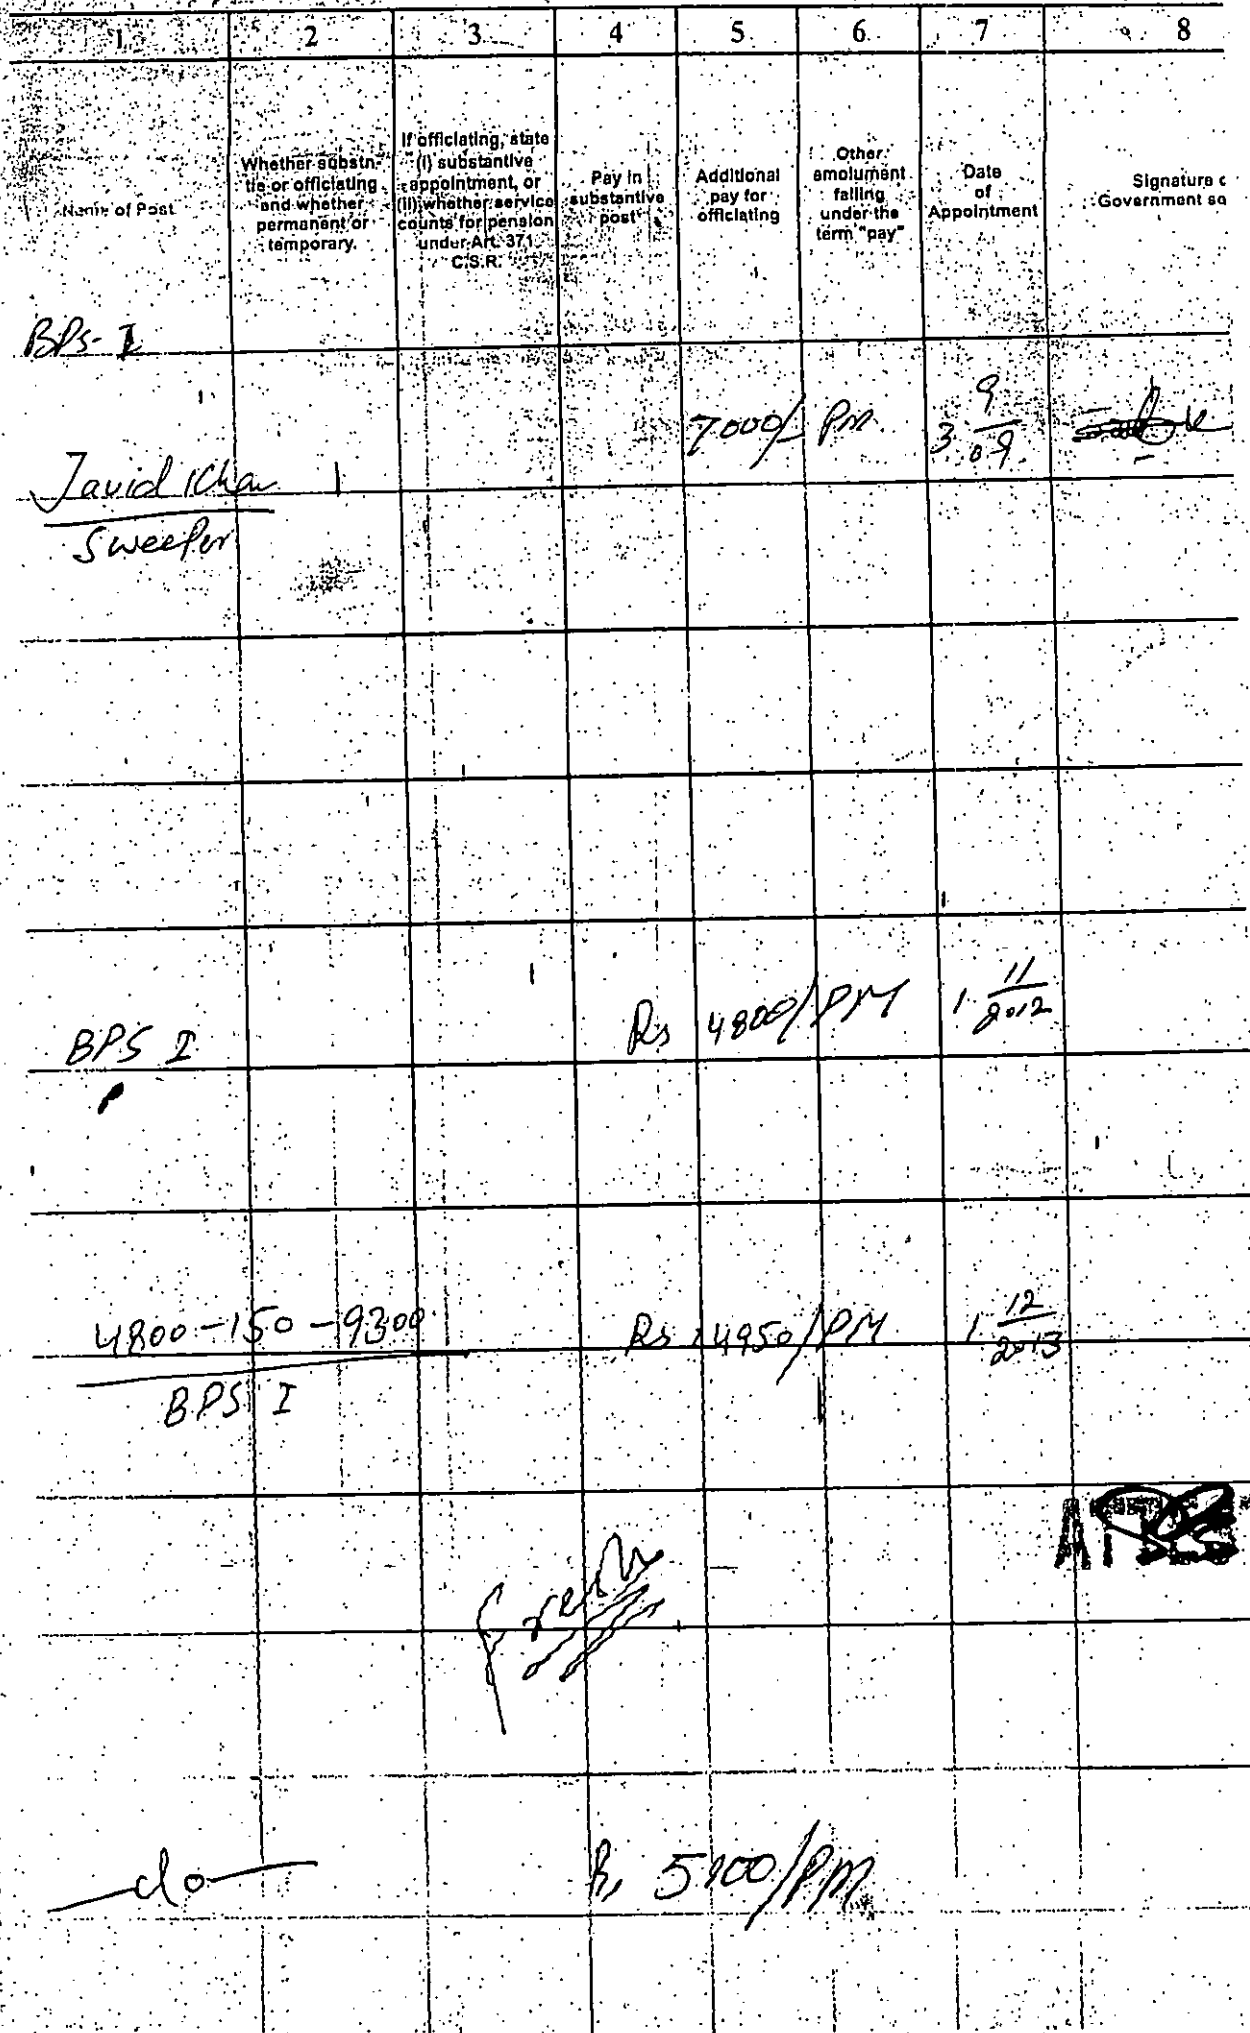 1 2 3 4 5 6 7 8
Name of Post
Whether substn-
tie or officiating
and whether
permanent or
temporary.
If officiating, state
(i) substantive
appointment, or
(ii) whether service
counts for pension
under Art. 371
C.S.R.
Pay in
substantive
post
Additional
pay for
officiating
Other
emolument
falling
under the
term "pay"
Date
of
Appointment
Signature
Government
BPS-I
7000/- Pm 3 9/09
Javid Khan
Sweeper
BPS I Rs 4800/PM 1 11/2012
4800-150-9300 Rs 4950/PM 1 12/2013
BPS I
do Rs 5100/PM